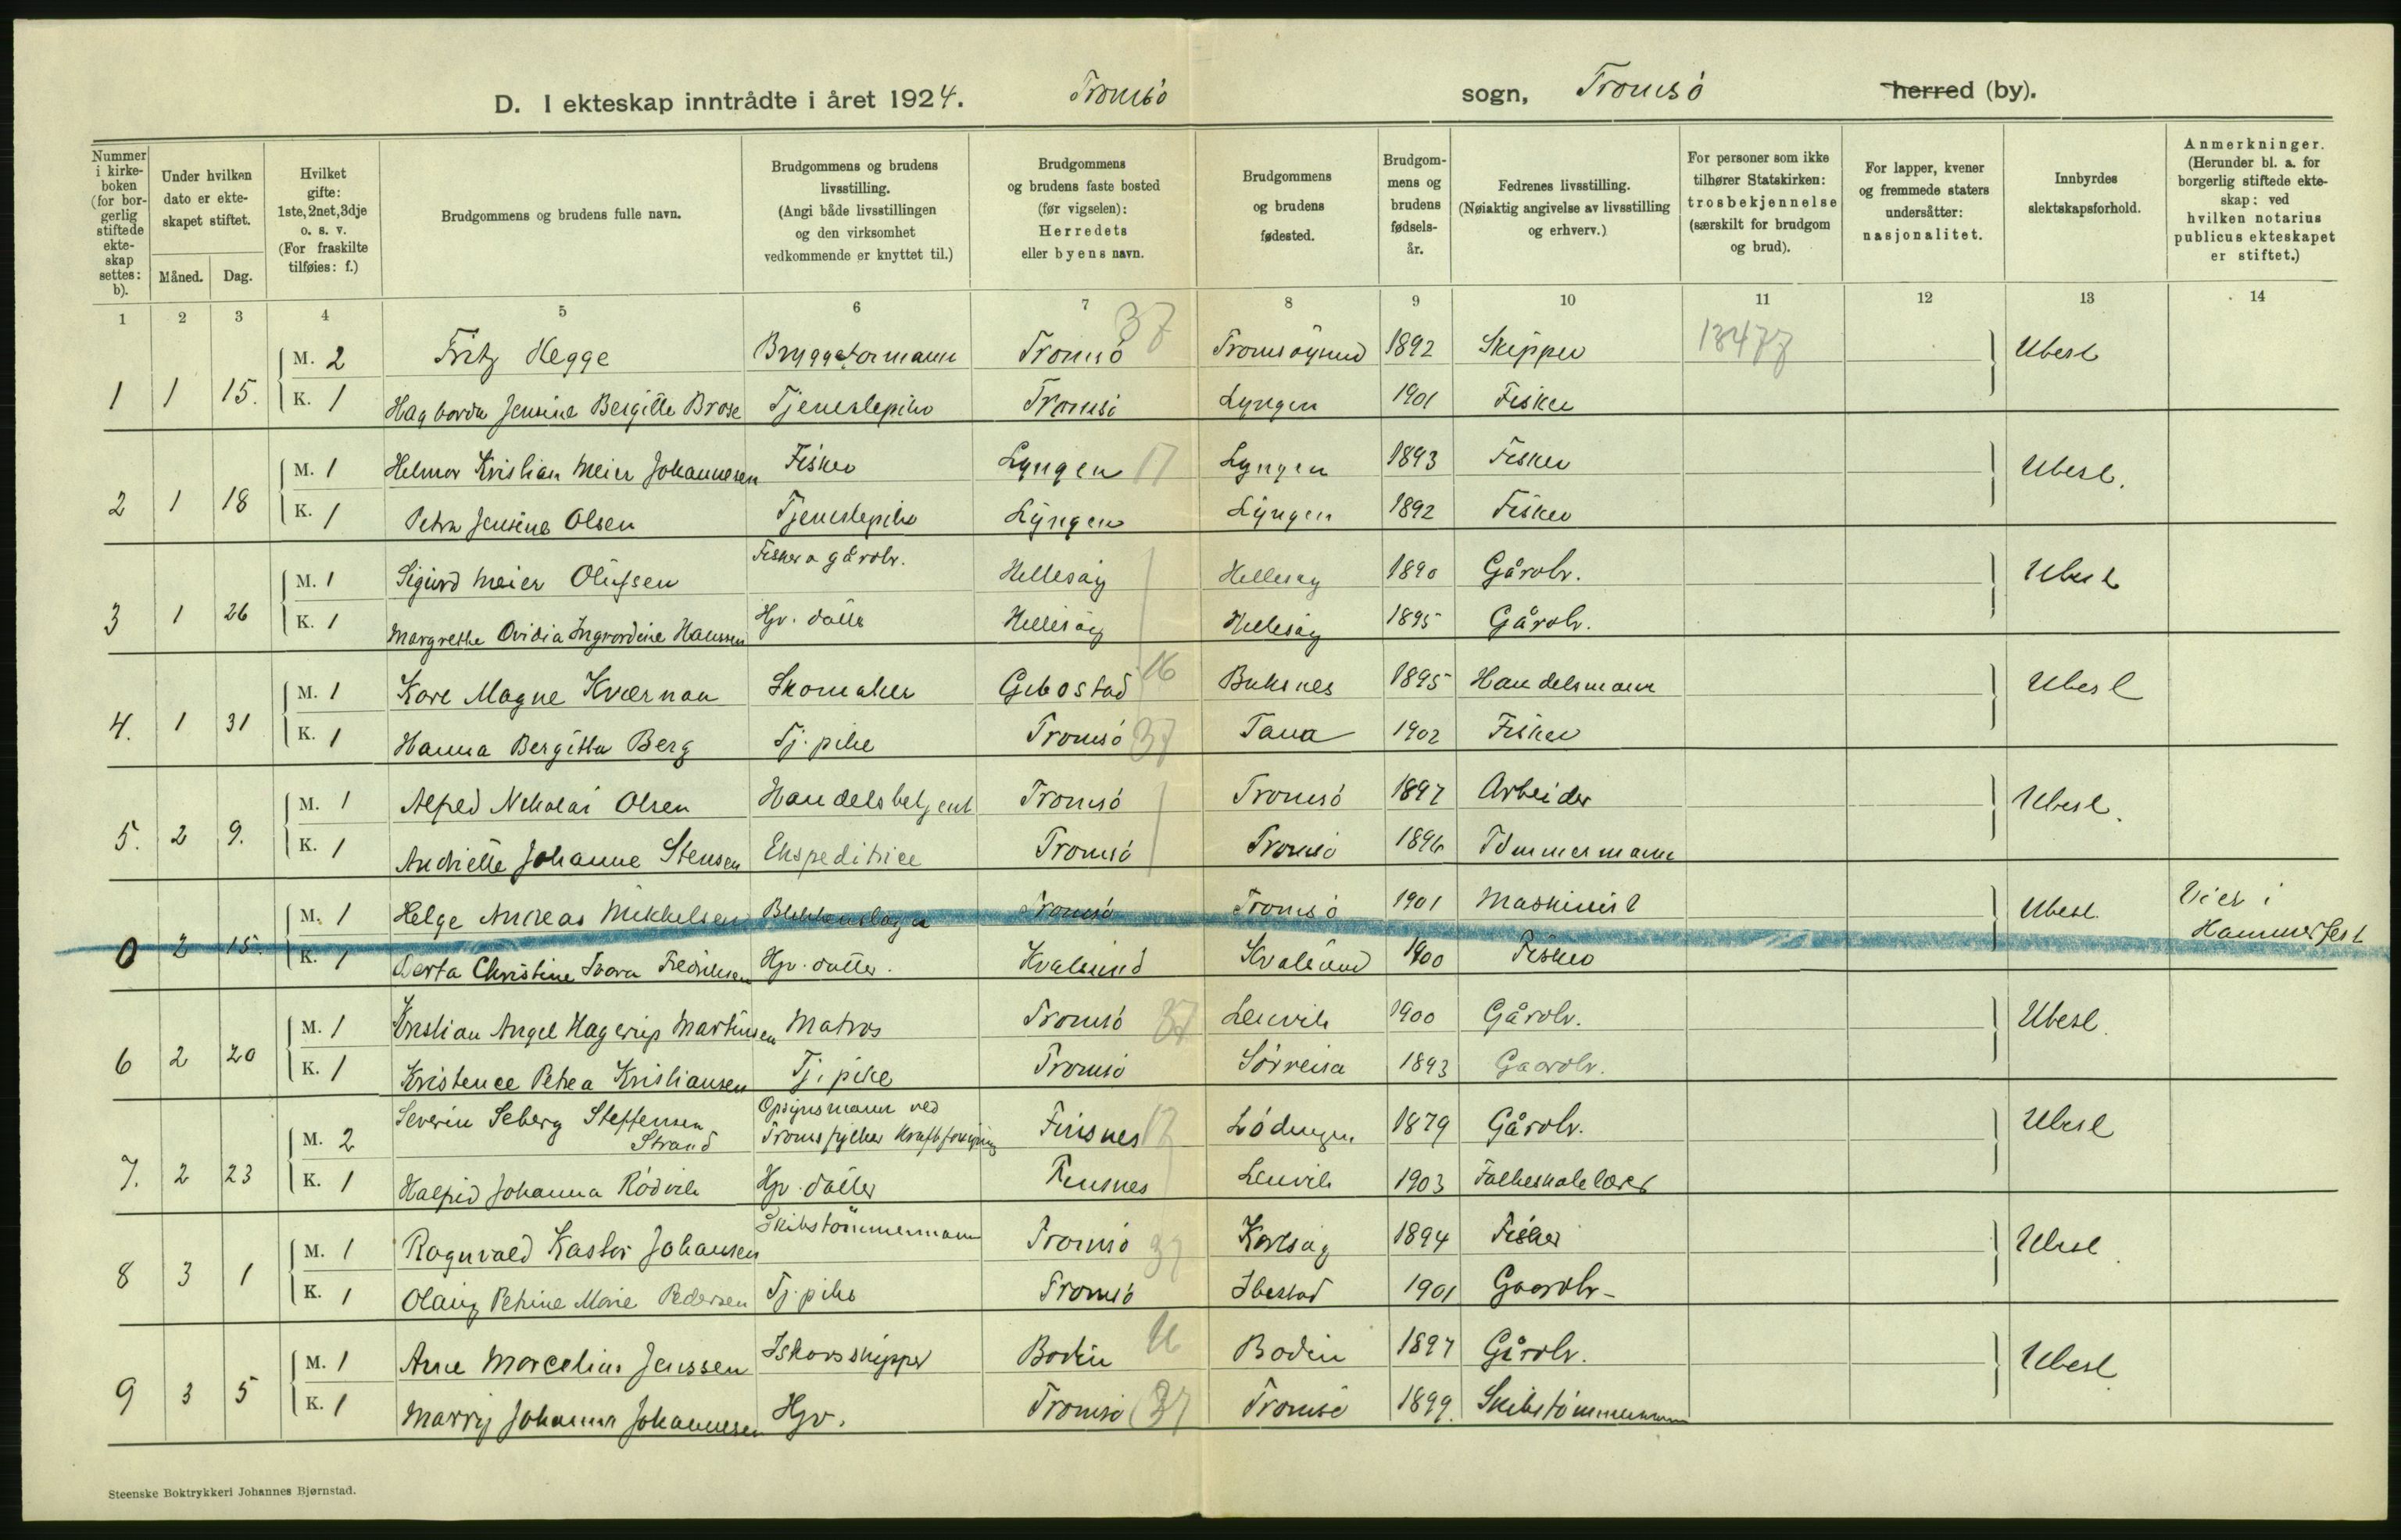 D. I ekteskap inntrådte i året 1924. Tromsö sogn, Tromsö herred (by).
Nummer i kirkeboken (for borgerlig stiftede ekteskap settes: b).
Under hvilken dato er ekteskapet stiftet.
Måned. Dag.
Hvilket gifte: 1ste, 2net, 3dje o. s. v. (For fraskilte tilføies: f.)
Brudgommens og brudens fulle navn.
Brudgommens og brudens livsstilling. (Angi både livsstillingen og den virksomhet vedkommende er knyttet til.)
Brudgommens og brudens faste bosted (før vigselen): Herredets eller byens navn.
Brudgommens og brudens fødested.
Brudgommens og brudens fødselsår.
Fedrenes livsstilling. (Nøiaktig angivelse av livsstilling og erhverv.)
For personer som ikke tilhører Statskirken: trosbekjennelse (særskilt for brudgom og brud).
For lapper, kvener og fremmede staters undersåtter: nasjonalitet.
Innbyrdes slektskapsforhold.
Anmerkninger. (Herunder bl. a. for borgerlig stiftede ekteskap: ved hvilken notarius publicus ekteskapet er stiftet.)
1 2 3 4 5 6 7 8 9 10 11 12 13 14
M. 2 Fritz Hegge Bryggeformann Tromsö 37 Tromsöysund 1892 Skipper 13477 Ubesl
1 1 15. K. 1 Hagborda Jensine Bergitte Brose Tjenestepike Tromsö Lyngen 1901 Fisker
M. 1 Helmor Kristian Meier Johannesen Fisker Lyngen 17 Lyngen 1893 Fisker Ubesl.
2 1 18 K. 1 Petra Jensine Olsen Tjenestepike Lyngen Lyngen 1892 Fisker
M. 1 Sigurd Meier Olufsen Fisker o gårdbr. Hellesöy Hellesöy 1890 Gårdbr. Ubesl
3 1 26 K. 1 Margrethe Ovidia Ingvardine Hanssen Hjv. datter Hellesöy Hellesöy 1895 Gårdbr.
M. 1 Kare Magne Kværnan Skomaker Gibostad 16 Buksnes 1895 Handelsmann Ubesl
4. 1 31 K. 1 Hanna Bergitta Berg Tj. pike Tromsö 37 Tana 1902 Fisker
M. 1 Alfred Nikolai Olsen Handelsbetjent Tromsö Tromsö 1897 Arbeider Ubesl.
5. 2 9. K. 1 Andriette Johanne Stensen Ekspeditrice Tromsö Tromsö 1896 Tömmermann
M. 1 Helge Andreas Mikkelsen Blikkenslager Tromsö Tromsö 1901 Maskinist Ubesl. Viet i
0 2 15. K. 1 Christine Fredriksen Hjv. datter. Kvalsund Kvalsund 1900 Fisker Hammerfest
M. 1 Kristian Angel Hagerup Martinsen Matros Tromsö 37 Lenvik 1900 Gårdbr. Ubesl.
6 2 20 K. 1 Kristence Petrea Kristiansen Tj. pike Tromsö Sörreisa 1893 Gaardbr.
M. 2 Severin Seberg Steffensen Strand Opsynsmann ved Tromsfylkes Kraftforsyning Finsnes 17 Lödingen 1879 Gårdbr. Ubesl
7. 2 23 K. 1 Halfrid Johanna Rödvik Hjv. datter Finsnes Lenvik 1903 Folkeskolelærer
M. 1 Ragnvald Kastor Johansen Skibstömmermann Tromsö 37 Karlsöy 1894 Fisker Ubesl.
8 3 1 K. 1 Olaug Petrine Marie Pedersen Tj. pike Tromsö Ibestad 1901 Gaardbr-
M. 1 Arne Marcelius Jenssen Ishavsskipper Bodin Bodin 1897 Gårdbr. Ubesl.
9 3 5 K. 1 Marry Johanna Johannesen Hjv. Tromsö 37 Tromsö 1899. Skibstömmermann
Steenske Boktrykkeri Johannes Bjørnstad.